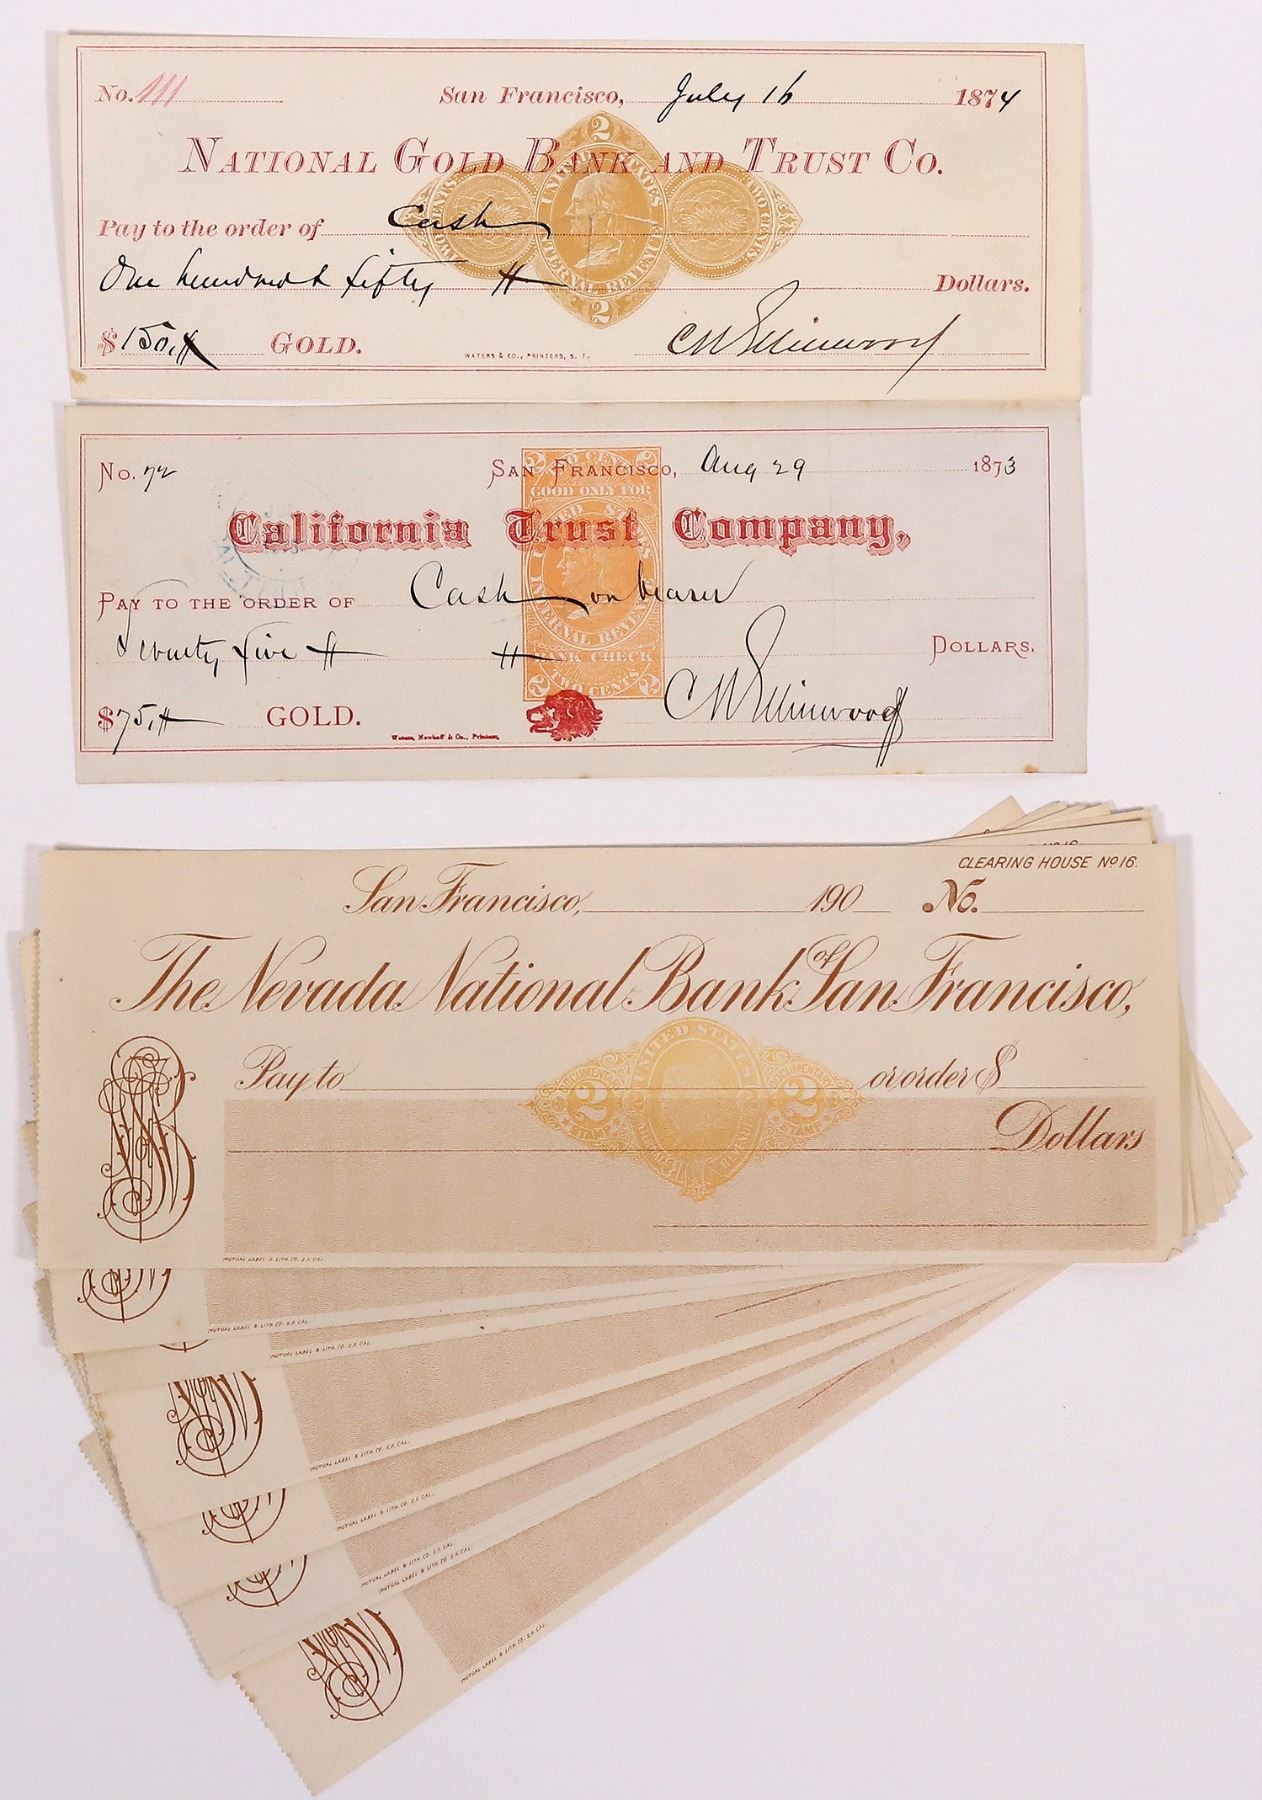 No. 111 San Francisco, July 16 1874
NATIONAL GOLD BANK AND TRUST CO.
Pay to the order of Cash
One hundred fifty Dollars.
$150. GOLD.
WATERS & CO., PRINTERS, S. F.
2
UNITED STATES
INTERNAL REVENUE
TWO CENTS
TWO CENTS
2
No. 72 SAN FRANCISCO, Aug 29 1873
California Trust Company,
PAY TO THE ORDER OF Cash or bearer
Seventy five DOLLARS.
$75. GOLD.
Waters, Newhoff & Co., Printers.
2 TWO CENTS 2
GOOD ONLY FOR
UNITED STATES
INTERNAL REVENUE
BANK CHECK
2 TWO CENTS 2
CLEARING HOUSE No 16.
San Francisco, 190 No.
The Nevada National Bank of San Francisco,
Pay to or order $
Dollars
UNITED STATES
DOCUMENTARY
2
STAMP
DOCUMENTARY
2
STAMP
MUTUAL LABEL & LITH. CO. S.F. CAL.
MUTUAL LABEL & LITH. CO. S.F. CAL.
MUTUAL LABEL & LITH. CO. S.F. CAL.
MUTUAL LABEL & LITH. CO. S.F. CAL.
MUTUAL LABEL & LITH. CO. S.F. CAL.
MUTUAL LABEL & LITH. CO. S.F. CAL.
MUTUAL LABEL & LITH. CO. S.F. CAL.
MUTUAL LABEL & LITH. CO. S.F. CAL.